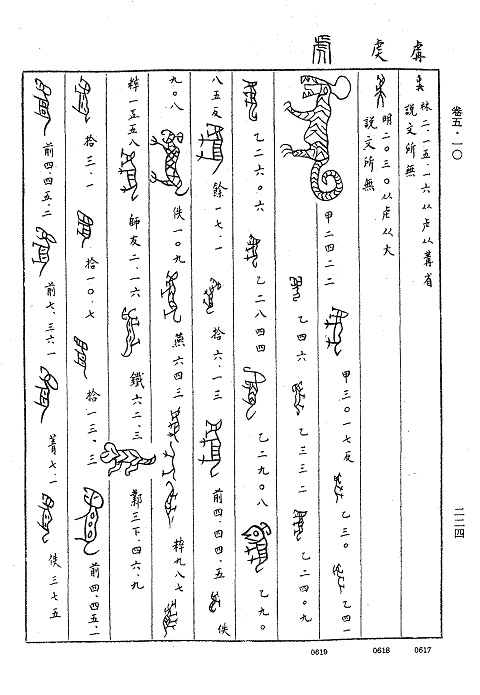 卷五·一〇
二二四
虎
林二·一五·一六 从虍从冓省
說文所無
明二〇三〇 从虍从大
說文所無
甲二四二二 甲三〇一七反 乙三〇 乙四一
乙四六 乙三三二 乙二四〇九
乙二六〇六 乙二八四四 乙二九〇八 乙九〇
八五反 餘一七·一 拾六·一三 前四·四四·五 佚
九〇八 佚一〇九 燕六四三 粹九八七
粹 師友二·一六 鐵六二·三 鄴三下·四六·九
拾三·一 拾一〇·七 拾一三·三 前四·四五·一
前四·四五·二 前七·三六·一 菁七·一 佚三七五
0619 0618 0617